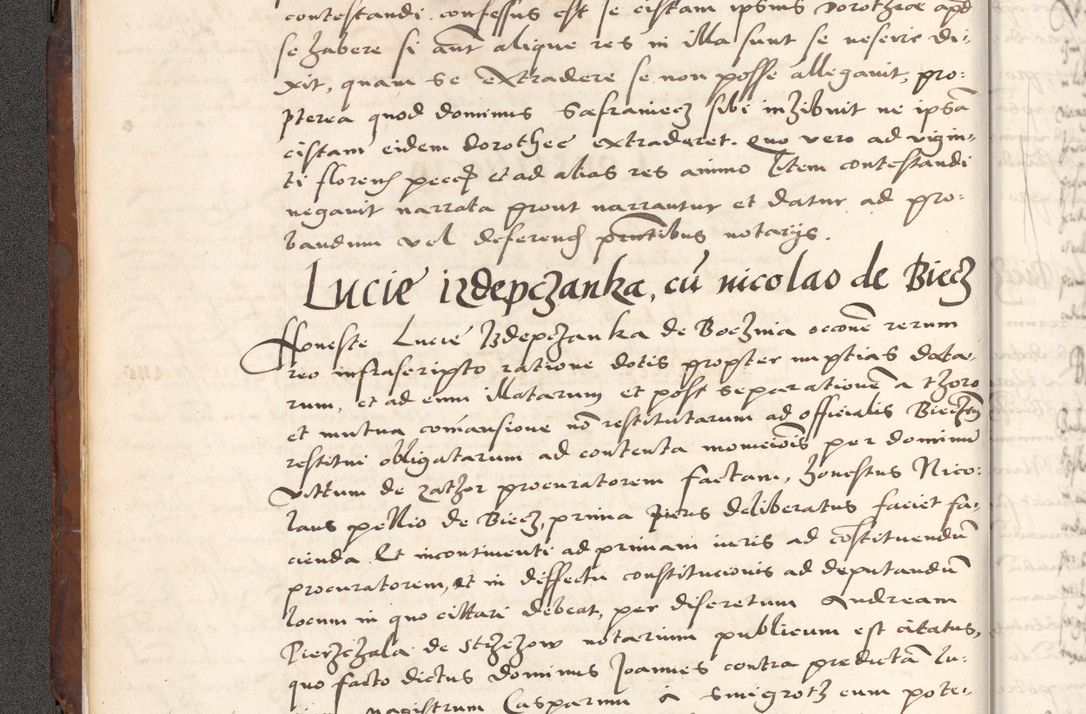 contestandi confessus est se cistam ipsius Dorothee apd
se habere si aut alique res in illa sunt se nescire di-
xit, quam se extradere se non posse allegavit, pro:
pterea quod dominus Safraniecz sibi inhibuit ne ipsā
cistam eidem Dorothee extraderet. Quo vero ad vigin-
ti floren pecc et ad alias res animo litem contestandi
negavit narrata prout narrantur et datur ad pro:
bandum vel deferend pntibus notarijs.
Lucie izdepczanka, cū nicolao de Biecz
Honeste Lucie Izdepczanka de Bochnia occone rerum
reo infrascripto ratione dotis propter nuptias data-
rum, et ad eum illatarum et post separationē a thoro
et mutua comansione nō restitutarum ad officialis Biecen
restitui obligatarum ad contenta monicōis per dominū
vittum de zathor procuratorem factam, honestus Nico:
laus pellio de Biecz, prima Juris deliberatus faciet fa-
cienda. Et incontinenti ad primam iuris ad cōstituendū
procuratorem, et in deffectu constitucionis ad deputandū
locum in quo cittari debeat, per discretum Andream
Pierzchala de Strzezow notarium publicum est citatus,
quo facto dictus dominus Joannes contra predictā Lu-
magistrum Casparum a Smigrotz cum pote-